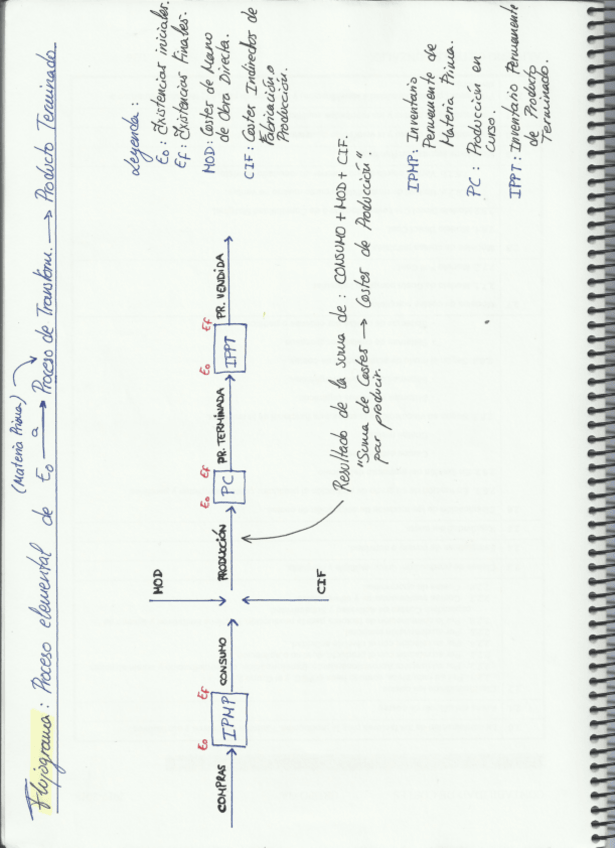 (Materia Prima)
Flujograma: Proceso elemental de Eo a → Proceso de Transform. → Producto Terminado
Leyenda:
Eo: Existencias iniciales.
Ef: Existencias Finales.
MOD: Costes de Mano
de Obra Directa.
CIF: Costes Indirectos de
Fabricación o
Producción.
MOD
Eo Ef Eo Ef Eo Ef
COMPRAS IPMP CONSUMO PRODUCCIÓN PC PR. TERMINADA IPPT PR. VENDIDA
CIF
Resultado de la suma de: CONSUMO + MOD + CIF.
"Suma de Costes → Costes de Producción".
por producir.
IPMP: Inventario
Permanente de
Materia Prima.
PC: Producción en
curso.
IPPT: Inventario Permanente
de Producto
Terminado.